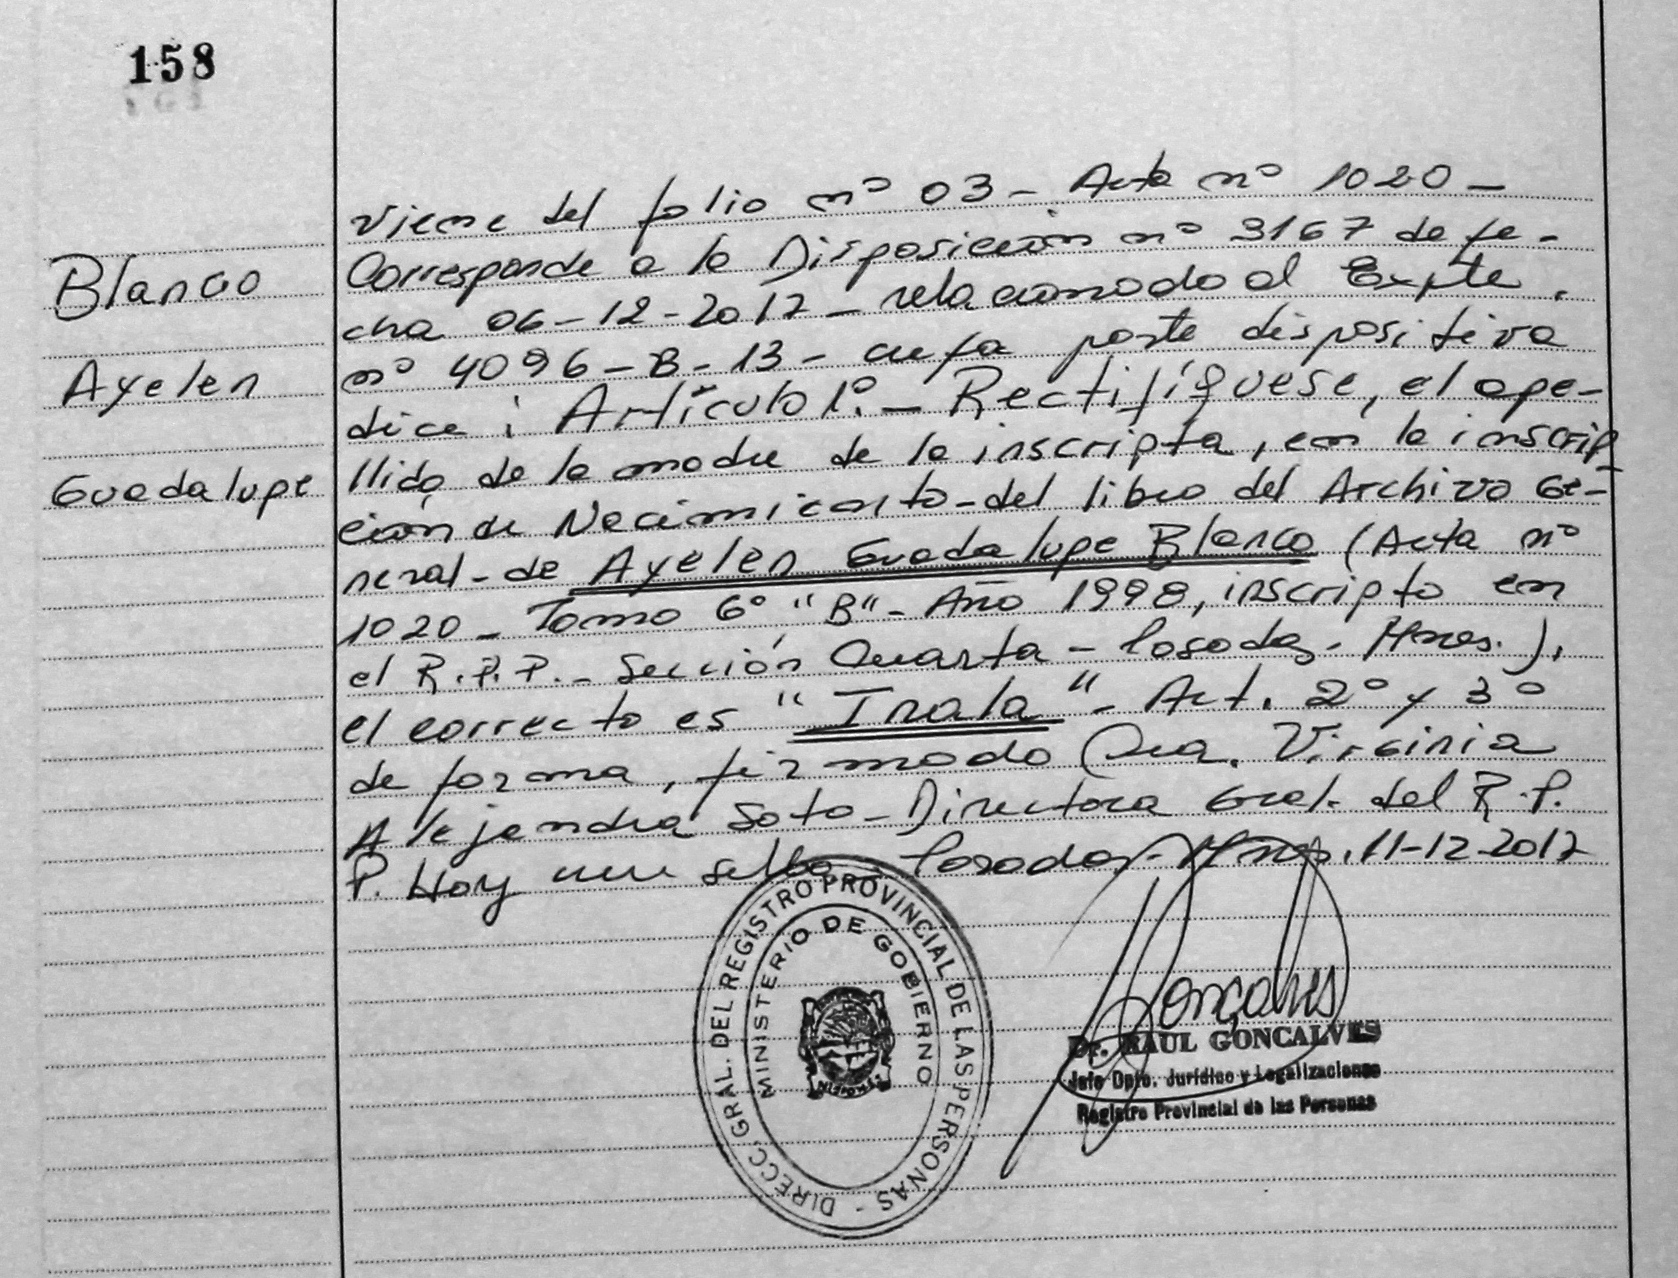 158
Blanco
Ayelen
Guadalupe
Viene del folio nº 03 - Acta nº 1020 -
Corresponde a la Disposición nº 3167 de fe-
cha 06-12-2017 - relacionado al Expte.
nº 4096-B-13 - cuya parte dispositiva
dice: Artículo 1º. - Rectifíquese, el ape-
llido de la madre de la inscripta, en la inscrip-
ción de Nacimiento - del libro del Archivo Ge-
neral - de Ayelen Guadalupe Blanco (Acta nº
1020 - Tomo 6º "B" - Año 1998, inscripto en
el R.P.P. - Sección Cuarta - Posadas - Mnes.),
el correcto es "Irala" - Art. 2º y 3º
de forma, firmado Dra. Virginia
Alejandra Soto - Directora Gral. del R.P.
P. Hoy Posadas - Mnes, 11-12-2017
DIRECC. GRAL. DEL REGISTRO PROVINCIAL DE LAS PERSONAS -
MINISTERIO DE GOBIERNO
MISIONES
Goncalves
Dr. RAUL GONCALVES
Jefe Dpto. Jurídico y Legalizaciones
Registro Provincial de las Personas